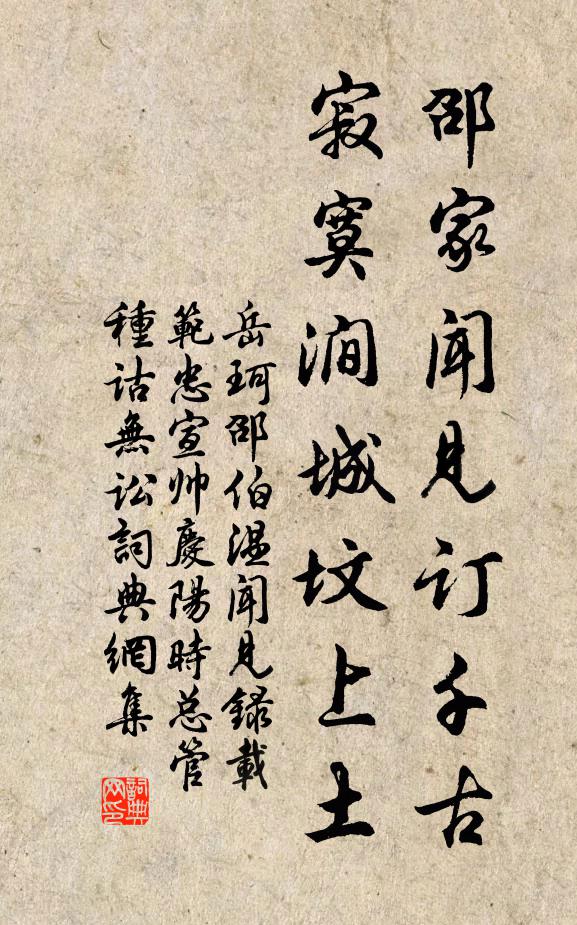 邵家聞見订千古
寂寞澗城坟上土
岳珂邵伯温聞見録載
範忠宣帅慶陽時总管
種诂無讼詞典網集
詞典
网印